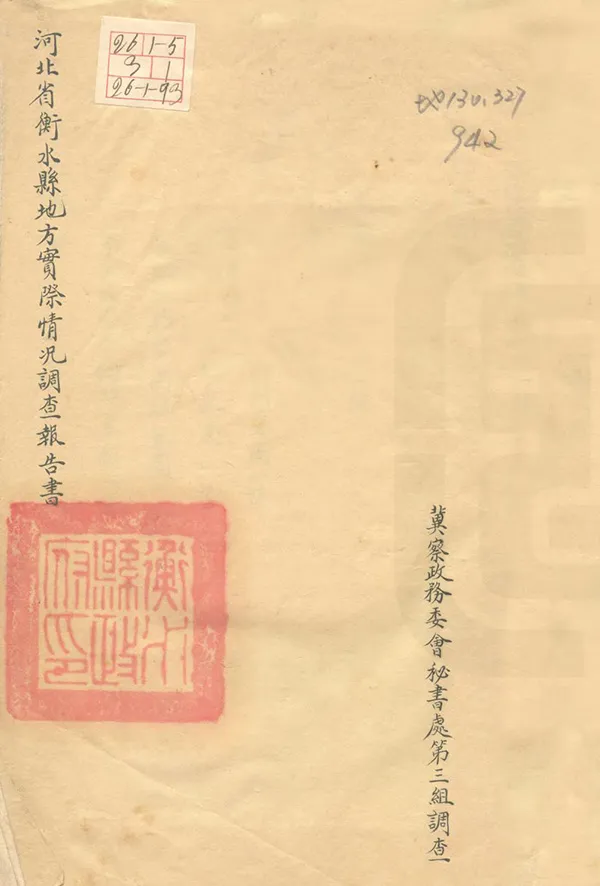 冀察政務委會秘書處第三組調查
河北省衡水縣地方實際情況調查報告書
衡水縣政府印
26 1-5
3 1
26-1-93
地130.327
942